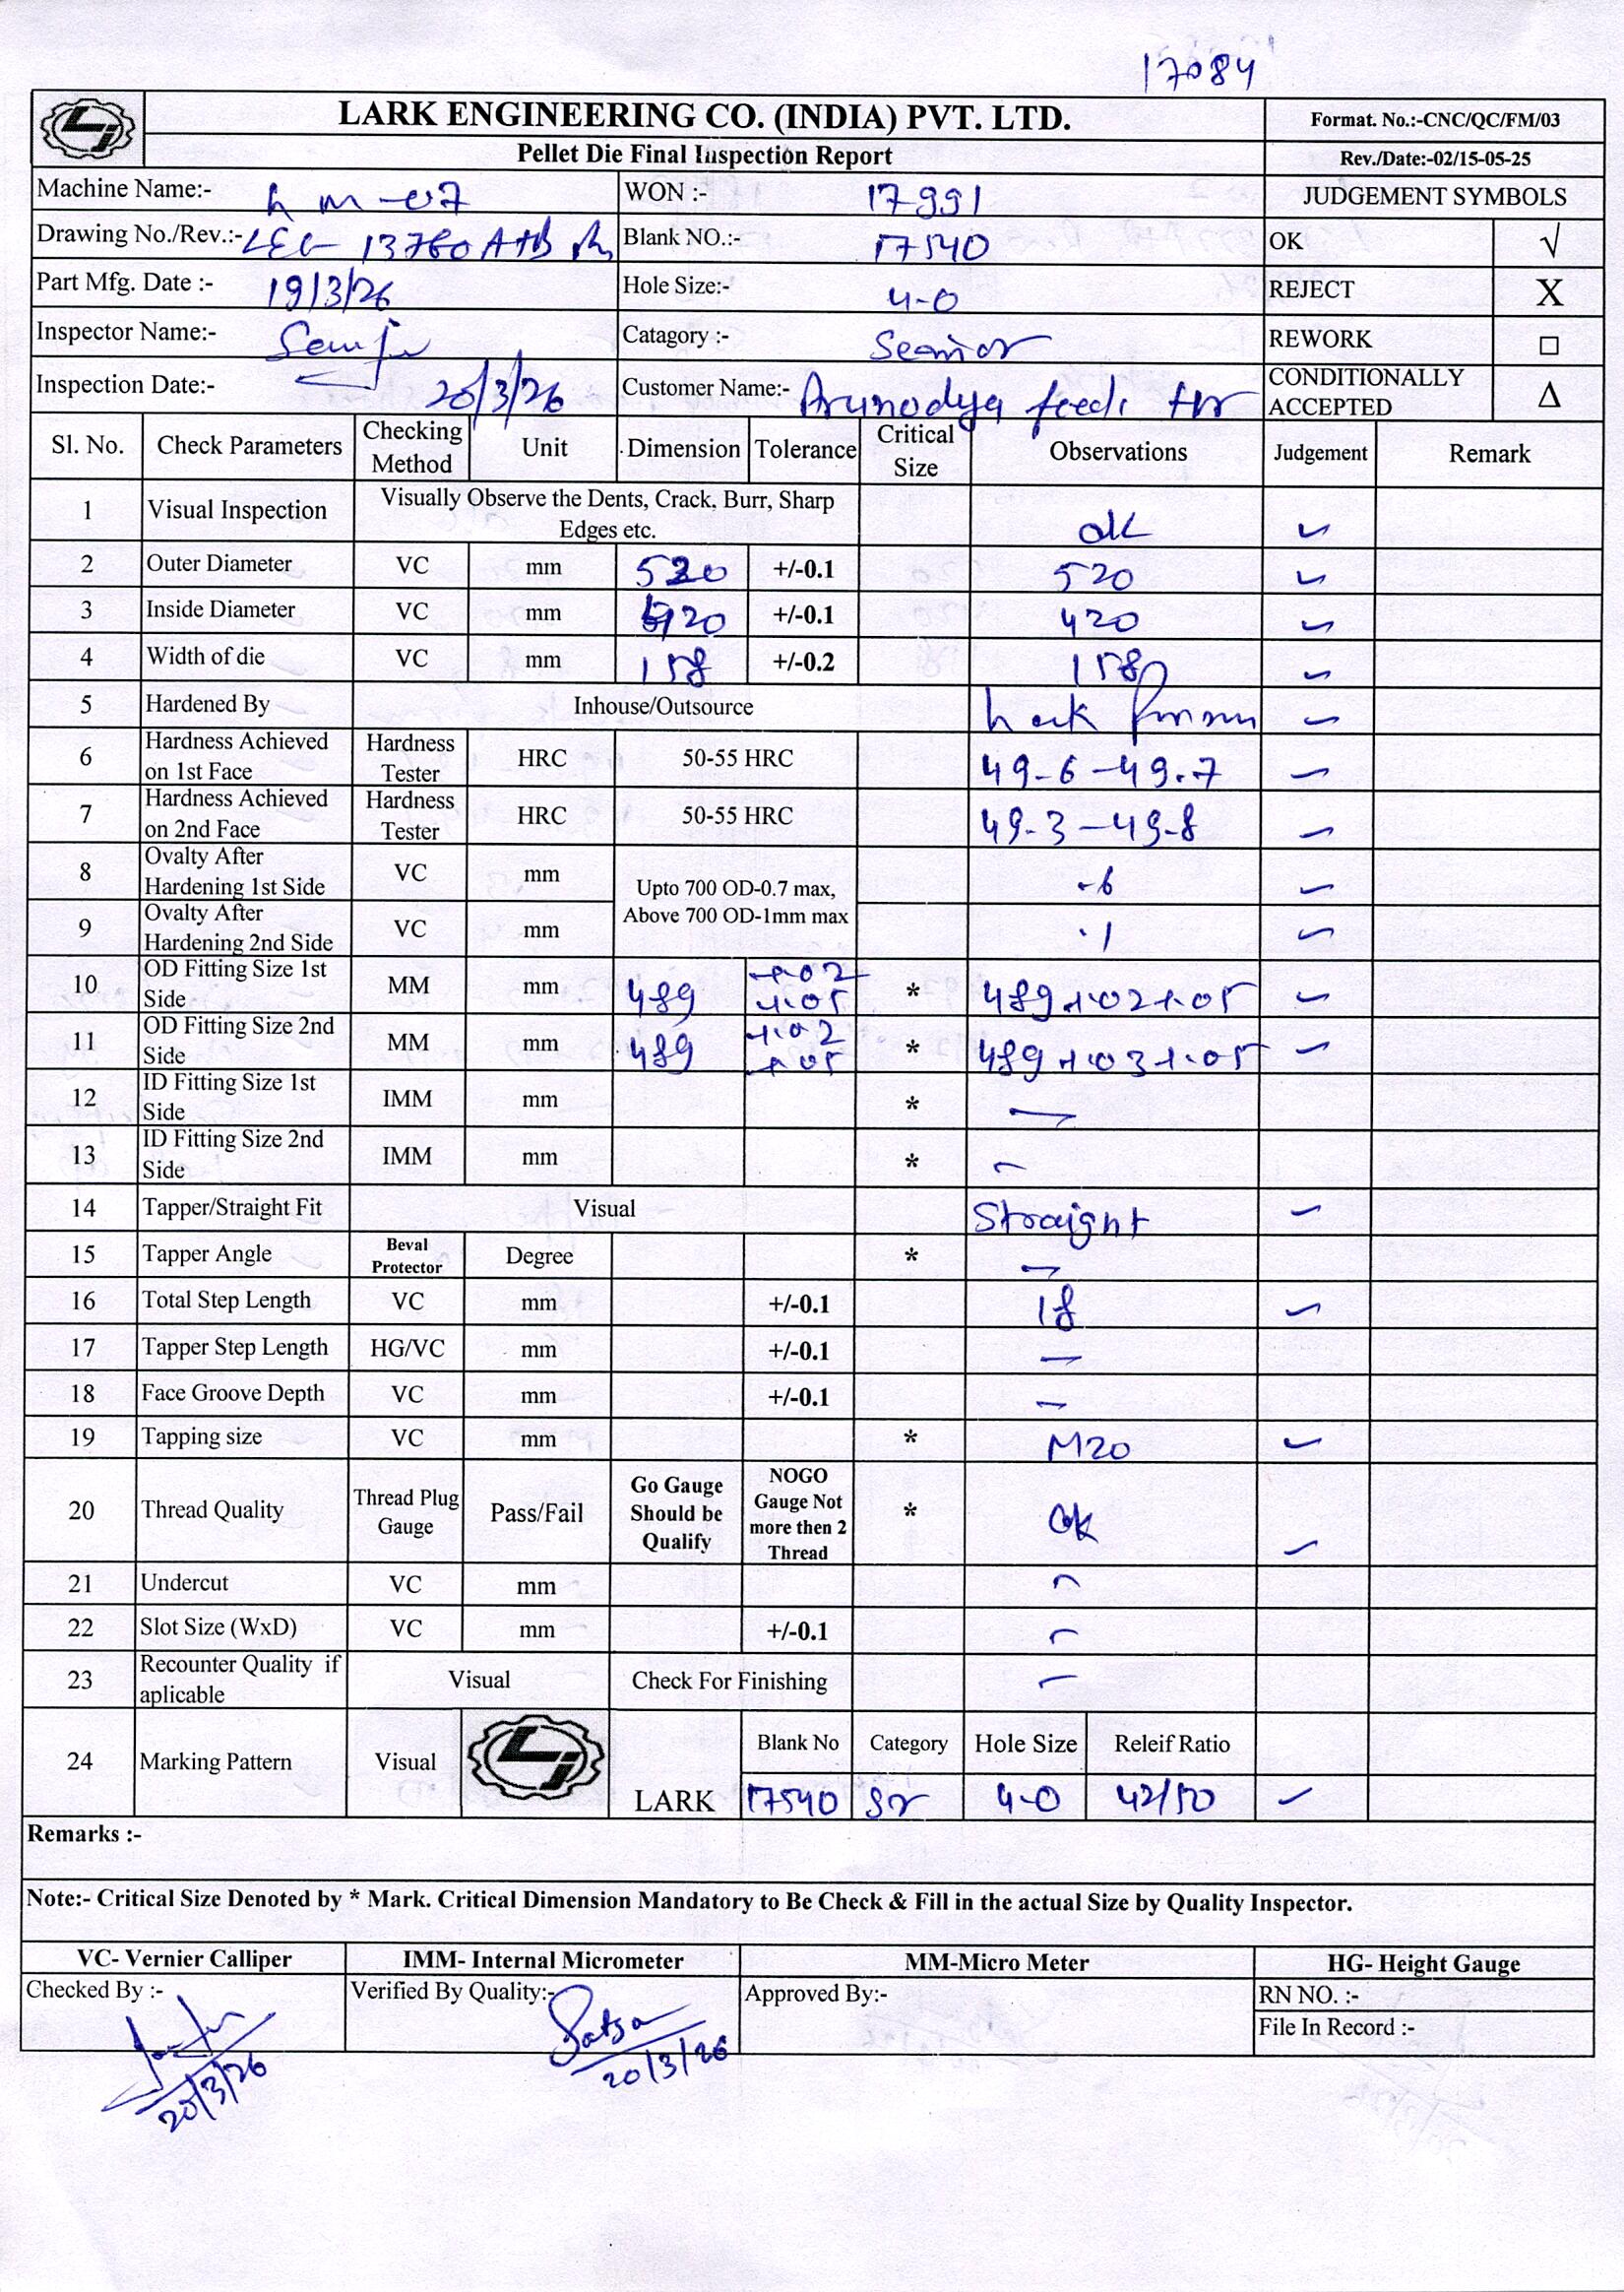 17084
LARK ENGINEERING CO. (INDIA) PVT. LTD.
Format. No.:-CNC/QC/FM/03
Pellet Die Final Inspection Report
Rev./Date:-02/15-05-25
Machine Name:- Lm-07 WON :- 17991 JUDGEMENT SYMBOLS
Drawing No./Rev.:- LEC- 13760 Blank NO.:- 17540 OK √
Part Mfg. Date :- 19/3/26 Hole Size:- 4-0 REJECT X
Inspector Name:- Catagory :- Seanior REWORK □
Inspection Date:- 20/3/26 Customer Name:- Arunodya feeds CONDITIONALLY ACCEPTED Δ
Sl. No. Check Parameters Checking Method Unit Dimension Tolerance Critical Size Observations Judgement Remark
1 Visual Inspection Visually Observe the Dents, Crack, Burr, Sharp Edges etc. ok ✓
2 Outer Diameter VC mm 520 +/-0.1 520 ✓
3 Inside Diameter VC mm 420 +/-0.1 420 ✓
4 Width of die VC mm 158 +/-0.2 158 ✓
5 Hardened By Inhouse/Outsource Lark ✓
6 Hardness Achieved on 1st Face Hardness Tester HRC 50-55 HRC 49-6-49.7 ✓
7 Hardness Achieved on 2nd Face Hardness Tester HRC 50-55 HRC 49-3-49-8 ✓
8 Ovalty After Hardening 1st Side VC mm Upto 700 OD-0.7 max, Above 700 OD-1mm max .6 ✓
9 Ovalty After Hardening 2nd Side VC mm .1 ✓
10 OD Fitting Size 1st Side MM mm 489 +.02 +.05 * 489+.02+.05 ✓
11 OD Fitting Size 2nd Side MM mm 489 +.02 +.05 * 489+.03+.05 ✓
12 ID Fitting Size 1st Side IMM mm * —
13 ID Fitting Size 2nd Side IMM mm * —
14 Tapper/Straight Fit Visual Straight ✓
15 Tapper Angle Beval Protector Degree * —
16 Total Step Length VC mm +/-0.1 18 ✓
17 Tapper Step Length HG/VC mm +/-0.1 —
18 Face Groove Depth VC mm +/-0.1 —
19 Tapping size VC mm * M20 ✓
20 Thread Quality Thread Plug Gauge Pass/Fail Go Gauge Should be Qualify NOGO Gauge Not more then 2 Thread * ok ✓
21 Undercut VC mm —
22 Slot Size (WxD) VC mm +/-0.1 —
23 Recounter Quality if aplicable Visual Check For Finishing —
24 Marking Pattern Visual LARK Blank No Category Hole Size Releif Ratio
17540 Sr 4-0 42/50 ✓
Remarks :-
Note:- Critical Size Denoted by * Mark. Critical Dimension Mandatory to Be Check & Fill in the actual Size by Quality Inspector.
VC- Vernier Calliper IMM- Internal Micrometer MM-Micro Meter HG- Height Gauge
Checked By :- Verified By Quality:- Approved By:- RN NO. :-
File In Record :-
20/3/26 20/3/26